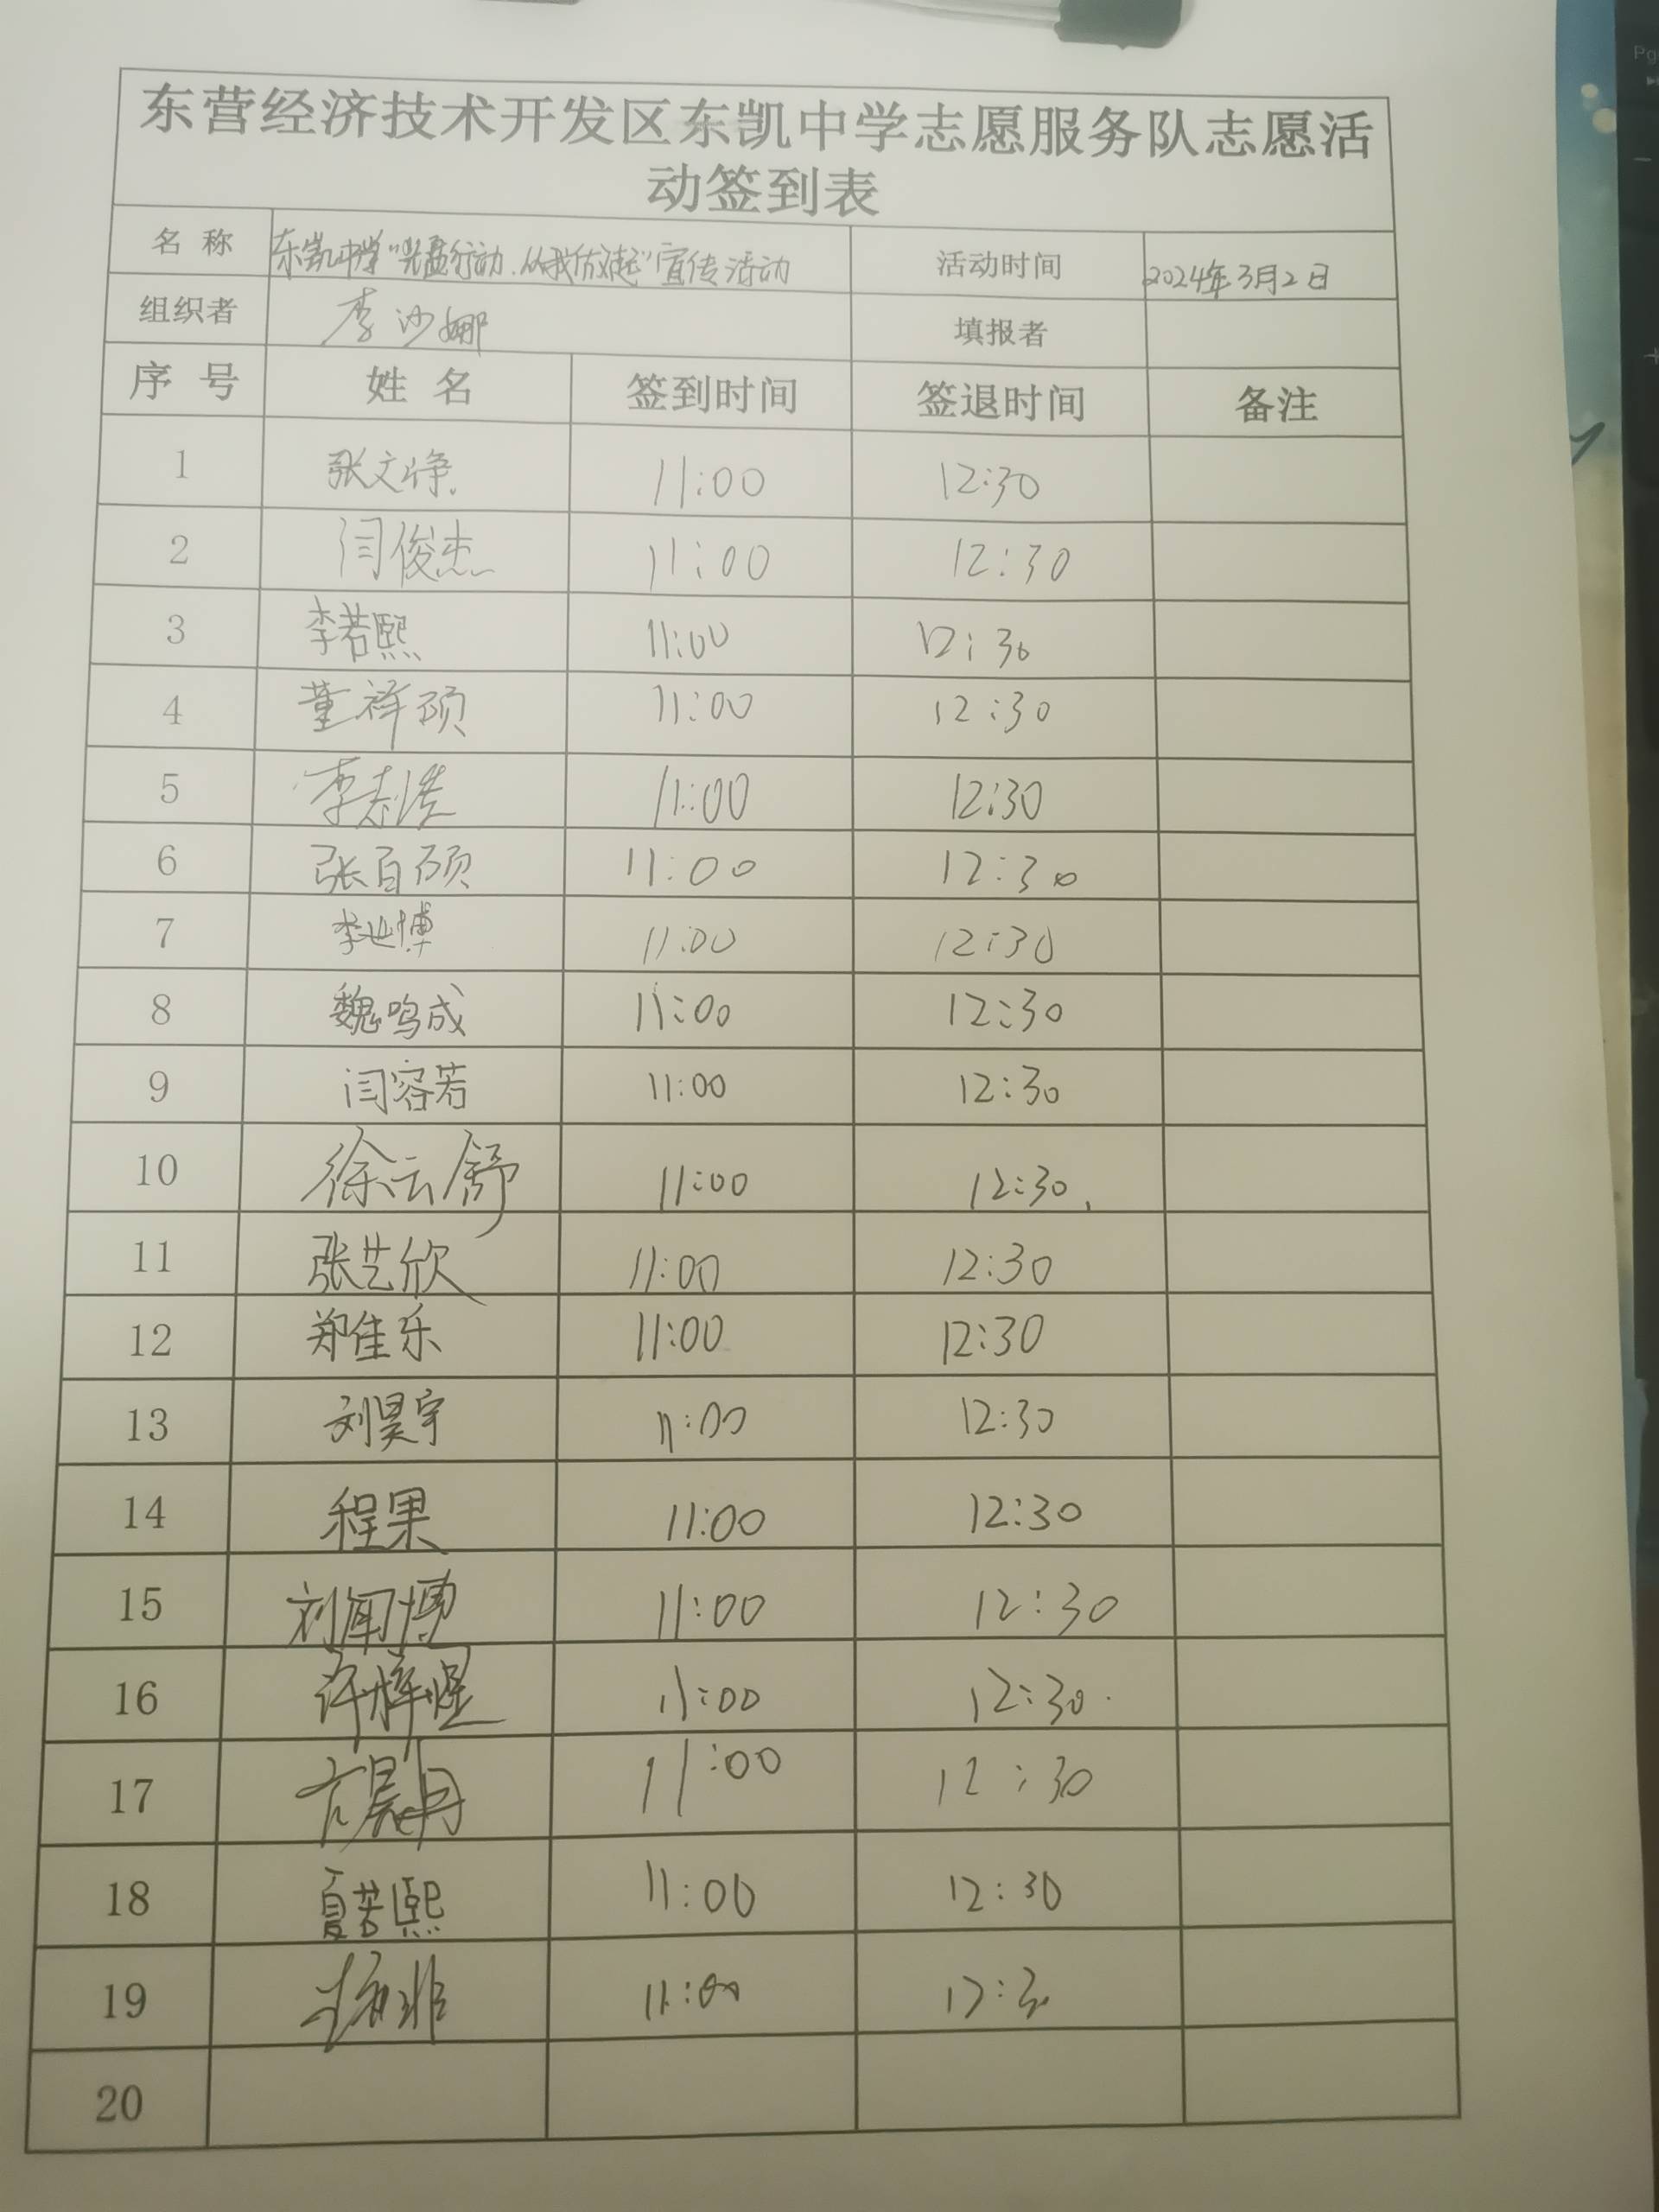 东营经济技术开发区东凯中学志愿服务队志愿活
动签到表
名 称 东凯中学“光盘行动、从我做起”宣传活动 活动时间 2024年3月2日
组织者 李沙娜 填报者
序 号 姓 名 签到时间 签退时间 备注
1 张文铮 11:00 12:30
2 闫俊杰 11:00 12:30
3 李若熙 11:00 12:30
4 董祥硕 11:00 12:30
5 李志浩 11:00 12:30
6 张百硕 11:00 12:30
7 李延博 11:00 12:30
8 魏鸣成 11:00 12:30
9 闫容若 11:00 12:30
10 徐云舒 11:00 12:30
11 张艺欣 11:00 12:30
12 郑佳乐 11:00 12:30
13 刘昊宇 11:00 12:30
14 程果 11:00 12:30
15 刘闻博 11:00 12:30
16 许烨煜 11:00 12:30
17 11:00 12:30
18 夏若熙 11:00 12:30
19 11:00 12:30
20